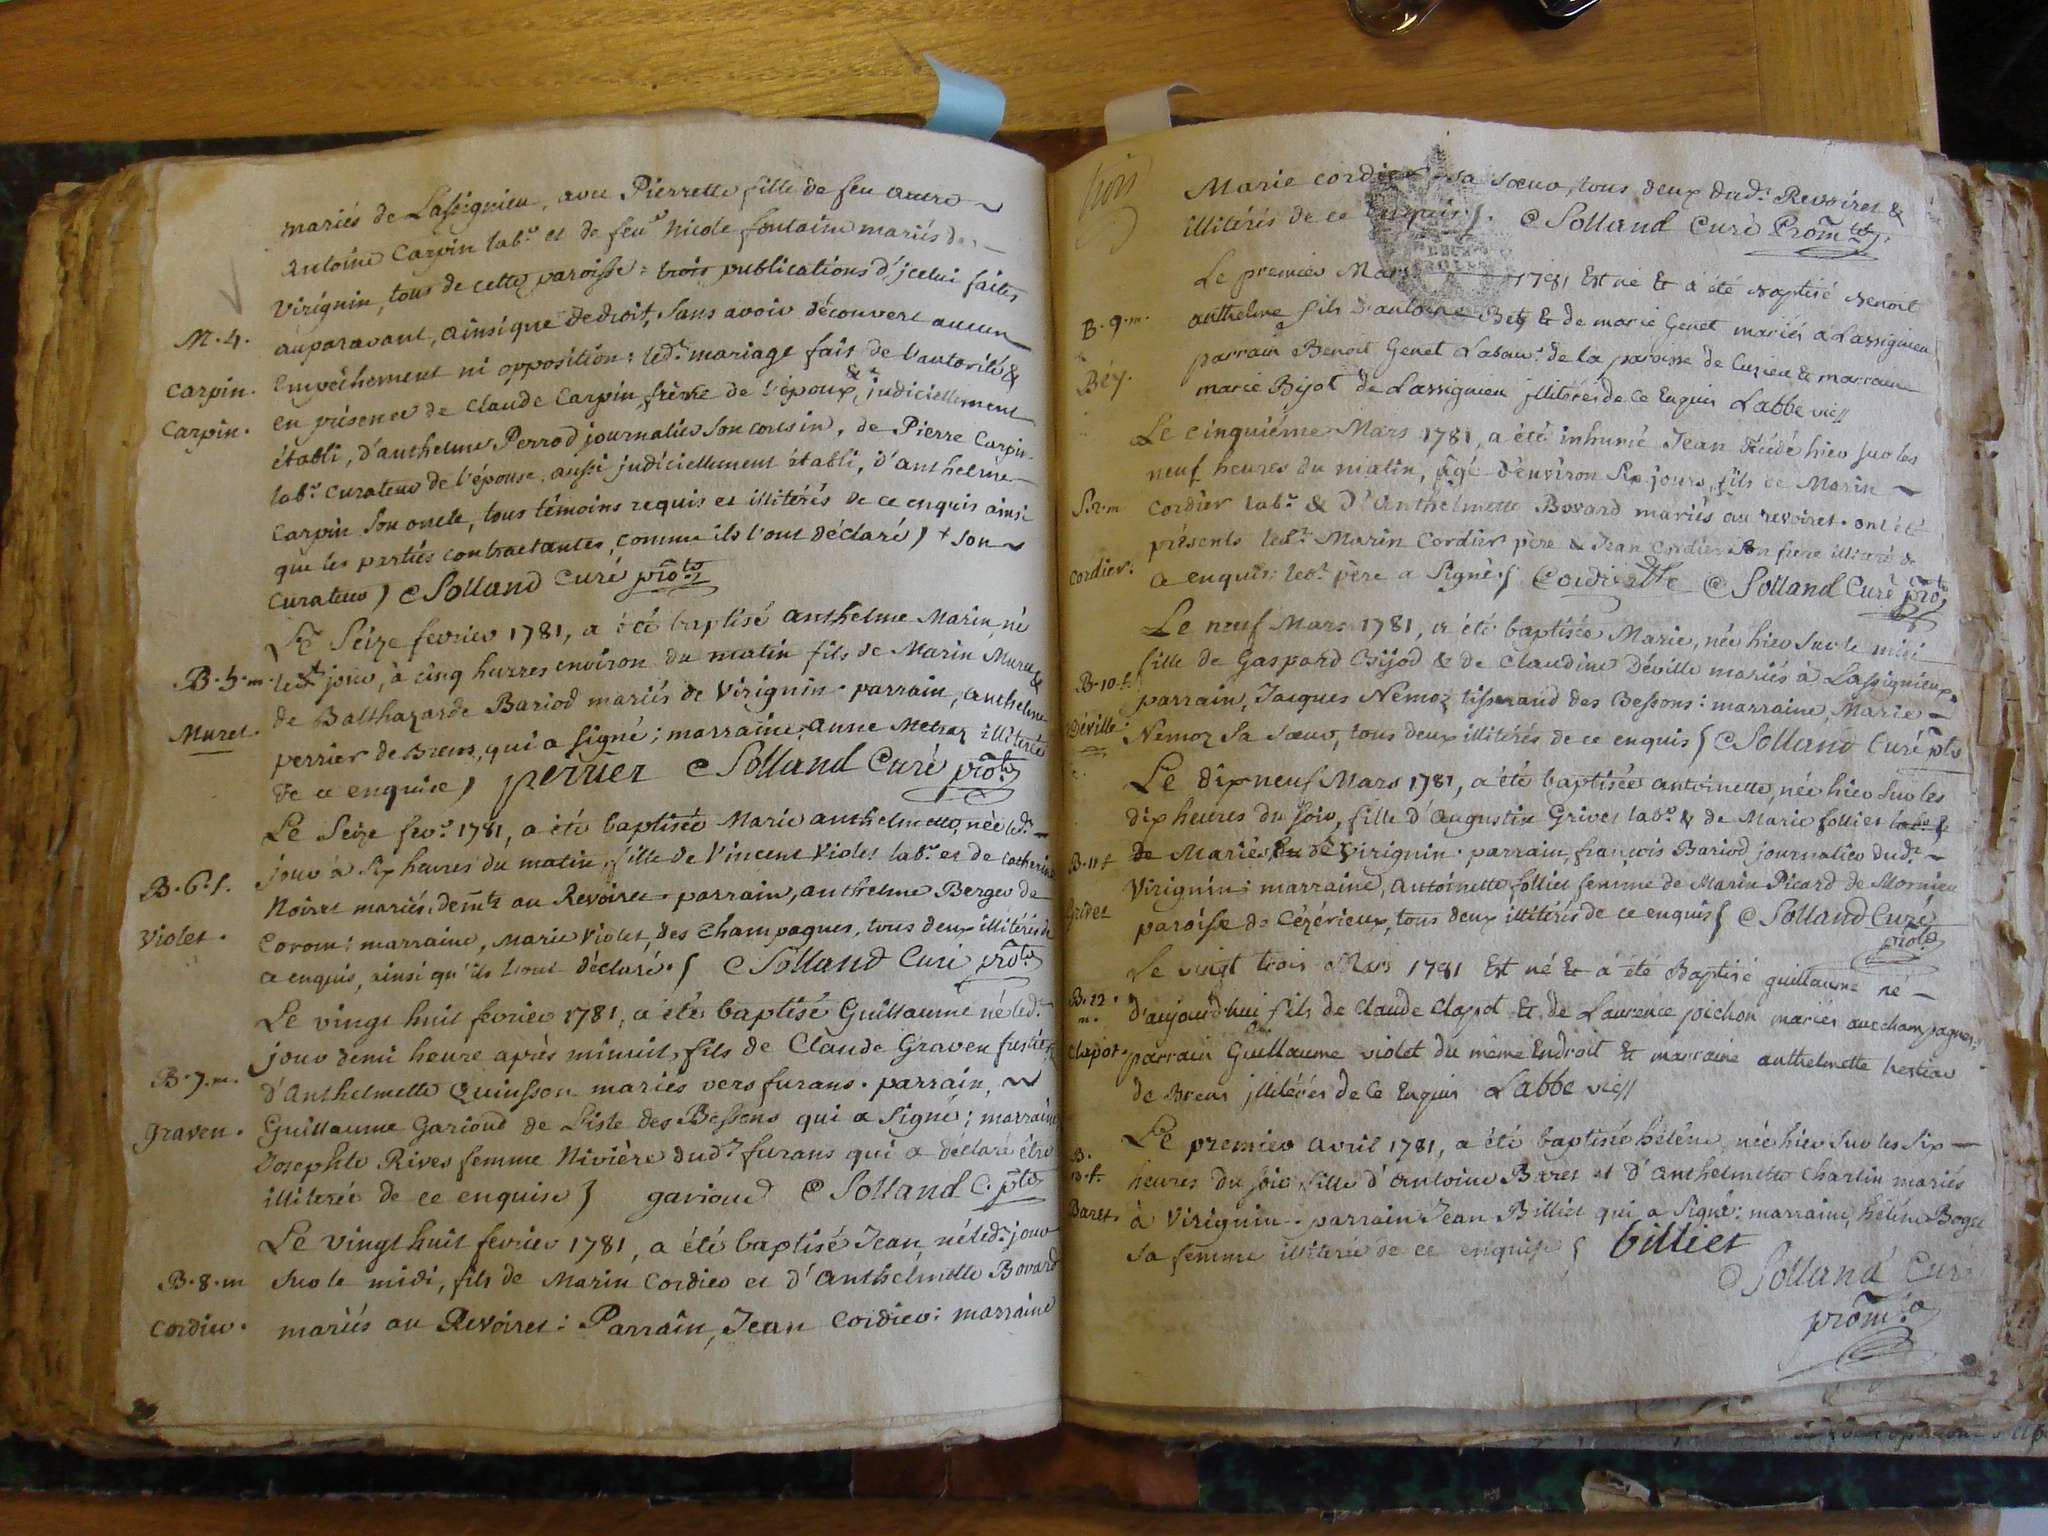 mariés de Lassignieu, avec Pierrette fille de feu autre
Antoine Carpin lab.r et de feue Nicole fontaine mariés de
Virignin, tous de cette paroisse: trois publications d'jcelui faites
auparavant, ainsi que de droit, sans avoir découvert aucun
M. 4.
Empêchement ni opposition: led.t mariage fait de l'autorité &
Carpin.
en présence de Claude Carpin frère de l'époux, judiciellement
Carpin.
établi, d'anthelme Perrod journalier son cousin, de Pierre Carpin
lab.r Curateur de l'épouse, aussi judiciellement établi, d'anthelme
Carpin son oncle, tous témoins requis et illitérés de ce enquis ainsi
que les parties contractantes, comme ils l'ont déclaré) + son
Curateur) Solland Curé
Le Seize fevrier 1781, a été baptisé anthelme Marin, né
B. 5. m.
led.t jour, à cinq heures environ du matin fils de Marin Muret &
de Balthazarde Bariod mariés de Virignin. parrain, anthelme
Muret.
perrier de Brens, qui a signé; marraine, anne Metraz illiterée
de ce enquise) perrier Solland Curé
Le Seize fev.r 1781, a été baptisée Marie anthelmette, née led.t
jour à six heures du matin, fille de Vincent Violet lab.r et de Catherine
B. 6. f.
Noiret mariés, dem.ts au Revoiret. parrain, anthelme Berger de
Violet.
Coron: marraine, Marie Violet, des Champagnes, tous deux illitérés de
ce enquis, ainsi qu'ils l'ont déclaré. Solland Curé
Le vingt huit fevrier 1781, a été baptisé Guillaume né led.t
jour demi heure après minuit, fils de Claude Graven
B. 7. m.
d'Anthelmette Quinsson mariés vers furans. parrain,
Graven.
Guillaume Garioud de Liste des Bessons qui a signé; marraine
Josephte Rives femme Nivière dud.t furans qui a déclaré être
illiterée de ce enquise) garioud Solland C.
Le vingt huit fevrier 1781, a été baptisé Jean, né led.t jour
B. 8. m
sur le midi, fils de Marin Cordier et d'Anthelmette Bovard
Cordier.
mariés au Revoiret: Parrain, Jean Cordier: marraine
trois
Marie Cordier sa sœur, tous deux dud.t Revoiret &
illitérés de ce enquis). Solland Curé
Le premier Mars 1781 Est né & a été baptisé Benoit
B. 9. m.
anthelme fils d'antoine Bey & de marie Genet mariés a Lassignieu
Béy.
parrain Benoit Genet de la paroisse de Cuzieu & marraine
marie Bijot de Lassignieu jllitérés de ce Enquis Labbe vic
Le cinquième Mars 1781, a été inhumé Jean décédé hier sur les
neuf heures du matin, âgé d'environ six jours, fils de Marin
S. 2. m
Cordier lab.r & d'Anthelmette Bovard mariés au revoiret. ont été
présents led.t Marin Cordier père & Jean Cordier son frère illiteré de
Cordier.
ce enquis: led.t père a signé. Solland Curé
Le neuf Mars 1781, a été baptisée Marie, née hier sur le midi
fille de Gaspard Bijod & de Claudine Déville mariés à Lassignieux
B. 10. f.
parrain, Jacques Nemoz tisserand des Bessons: marraine, Marie
Déville
Nemoz sa sœur, tous deux illitérés de ce enquis Solland Curé
Le dix neuf Mars 1781, a été baptisée antoinette, née hier sur les
dix heures du soir, fille d'Augustin Grivet lab.r & de Marie follier
B. 11 f
de Mariés de Virignin. parrain, françois Bariod journalier dud.t
Virignin: marraine, Antoinette follier femme de Marin Picard de Mornieu
Grivet
paroisse de Cézérieux, tous deux illitérés de ce enquis Solland Curé
Le vingt trois Mars 1781 Est né & a été Baptisé guillaume né
B. 12. m.
d'aujourd'hui fils de Claude Clapot & de Laurence pichon mariés aux champagnes:
Clapot.
parrain Guillaume violet du même Endroit & marraine anthelmette
de Brens jllitérés de ce Enquis Labbe vic
Le premier avril 1781, a été baptisée hélène, née hier sur les six
B. 13. f.
heures du soir, fille d'antoine Baret et d'Anthelmette Charlin mariés
Baret.
à Virignin. parrain Jean Billiet qui a signé: marraine, hélène Boge
sa femme illiterée de ce enquise billiet
Solland Curé